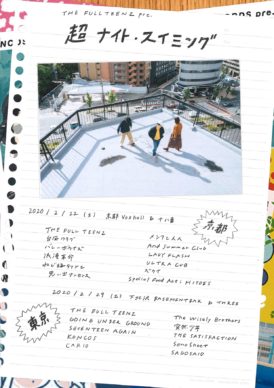 THE FULL TEENZ pre.
超ナイト・スイミング
2020/2/22 (土) 京都 VOXhall & 十八番
京都
THE FULL TEENZ
台風クラブ
メシアと人人
And Summer Club
バレーボウイズ
LADY FLASH
浪漫革命
ULTRA CUB
ベカオ
Special Food Act:
2020/2/29 (土) 下北沢 BASEMENTBAR & THREE
東京
THE FULL TEENZ
The Wisely Brothers
GOING UNDER GROUND
突然少年
SEVENTEEN AGAIN
THE SATISFACTION
KONCOS
SonoSheet
CAR10
SAGOSAID